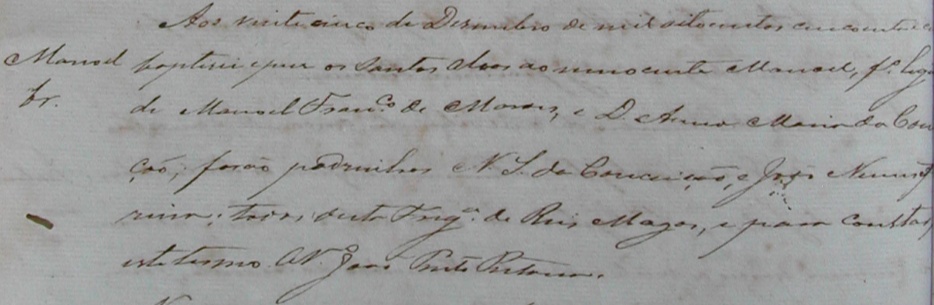 Aos vinte cinco de Dezembro de mil oitocentos cincoenta e
Manoel baptisei e puz os Santos Oleos ao innocente Manoel, fº. leg
br. de Manoel Franco. de Moraes, e D. Anna Maria da Con
ção; forão padrinhos N. S. da Conceição, e João Nunes
todos desta Frega. de Reis Magos, e para constar
este termo. O Vº João Pinto